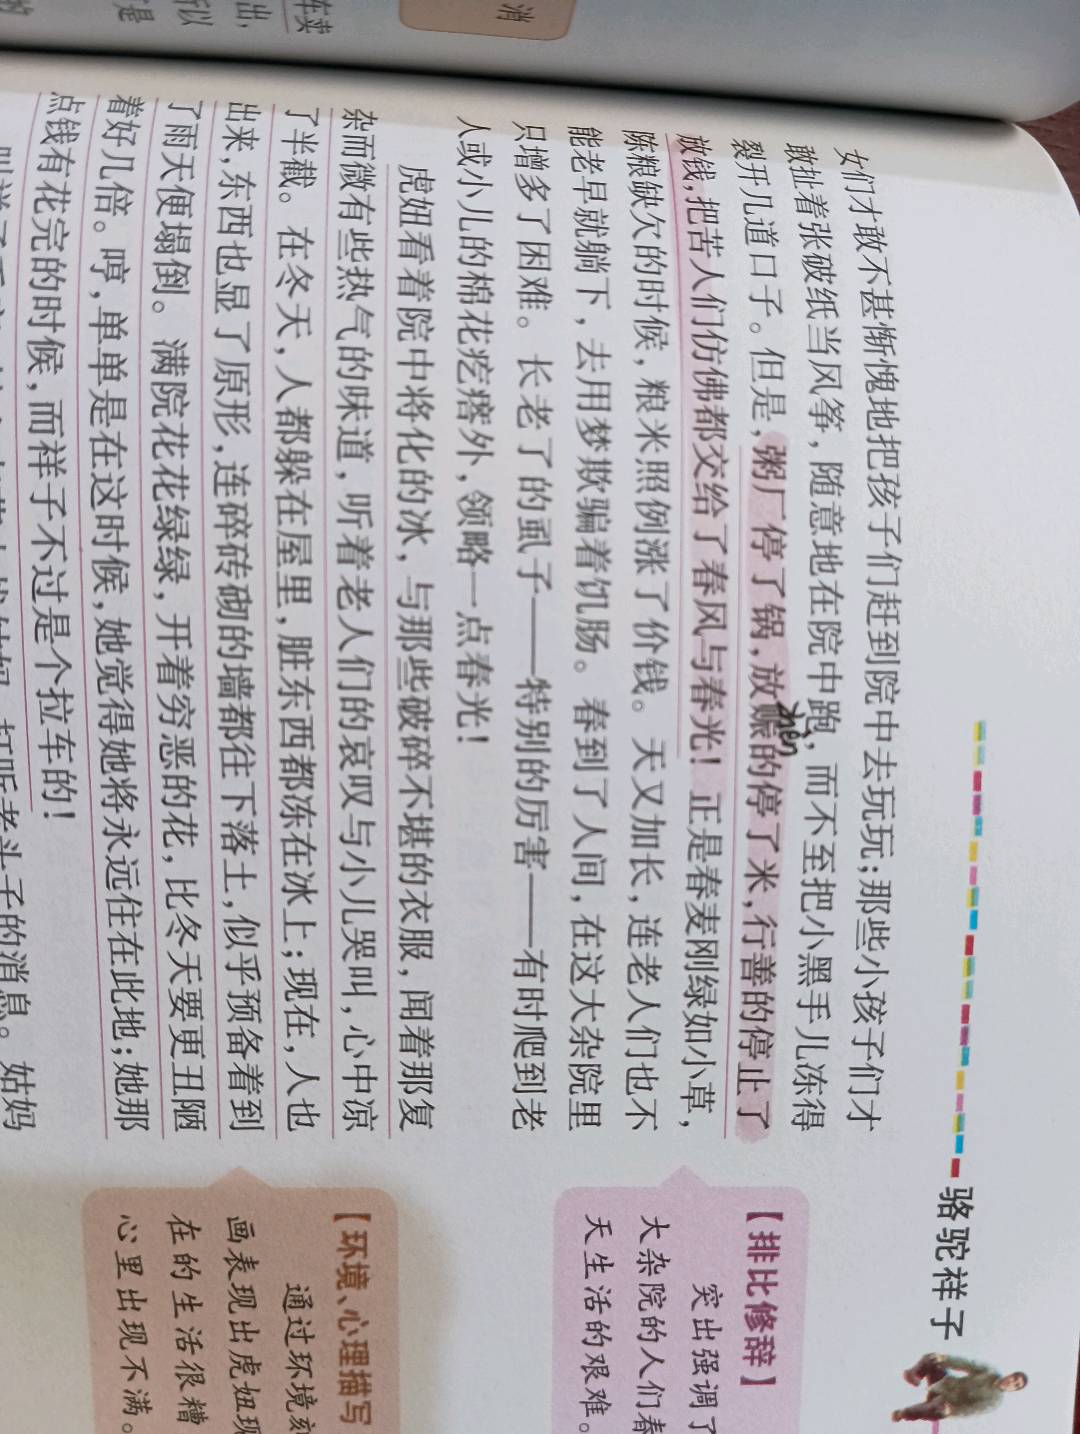 骆驼祥子
女们才敢不甚惭愧地把孩子们赶到院中去玩玩；那些小孩子们才
敢扯着张破纸当风筝，随意地在院中跑，而不至把小黑手儿冻得
裂开几道口子。但是，粥厂停了锅，放赈的停了米，行善的停止了
zhèn
放钱，把苦人们仿佛都交给了春风与春光！正是春麦刚绿如小草，
陈粮缺欠的时候，粮米照例涨了价钱。天又加长，连老人们也不
能老早就躺下，去用梦欺骗着饥肠。春到了人间，在这大杂院里
只增多了困难。长老了的虱子——特别的厉害——有时爬到老
人或小儿的棉花疙瘩外，领略一点春光！
虎妞看着院中将化的冰，与那些破碎不堪的衣服，闻着那复
杂而微有些热气的味道，听着老人们的哀叹与小儿哭叫，心中凉
了半截。在冬天，人都躲在屋里，脏东西都冻在冰上；现在，人也
出来，东西也显了原形，连碎砖砌的墙都往下落土，似乎预备着到
了雨天便塌倒。满院花花绿绿，开着穷恶的花，比冬天要更丑陋
着好几倍。哼，单单是在这时候，她觉得她将永远住在此地；她那
点钱有花完的时候，而祥子不过是个拉车的！
打听老头子的消息。姑妈
【排比修辞】
突出强调了
大杂院的人们春
天生活的艰难。
【环境、心理描写
通过环境刻
画表现出虎妞现
在的生活很糟
心里出现不满。
消
车卖
出，
所以
是